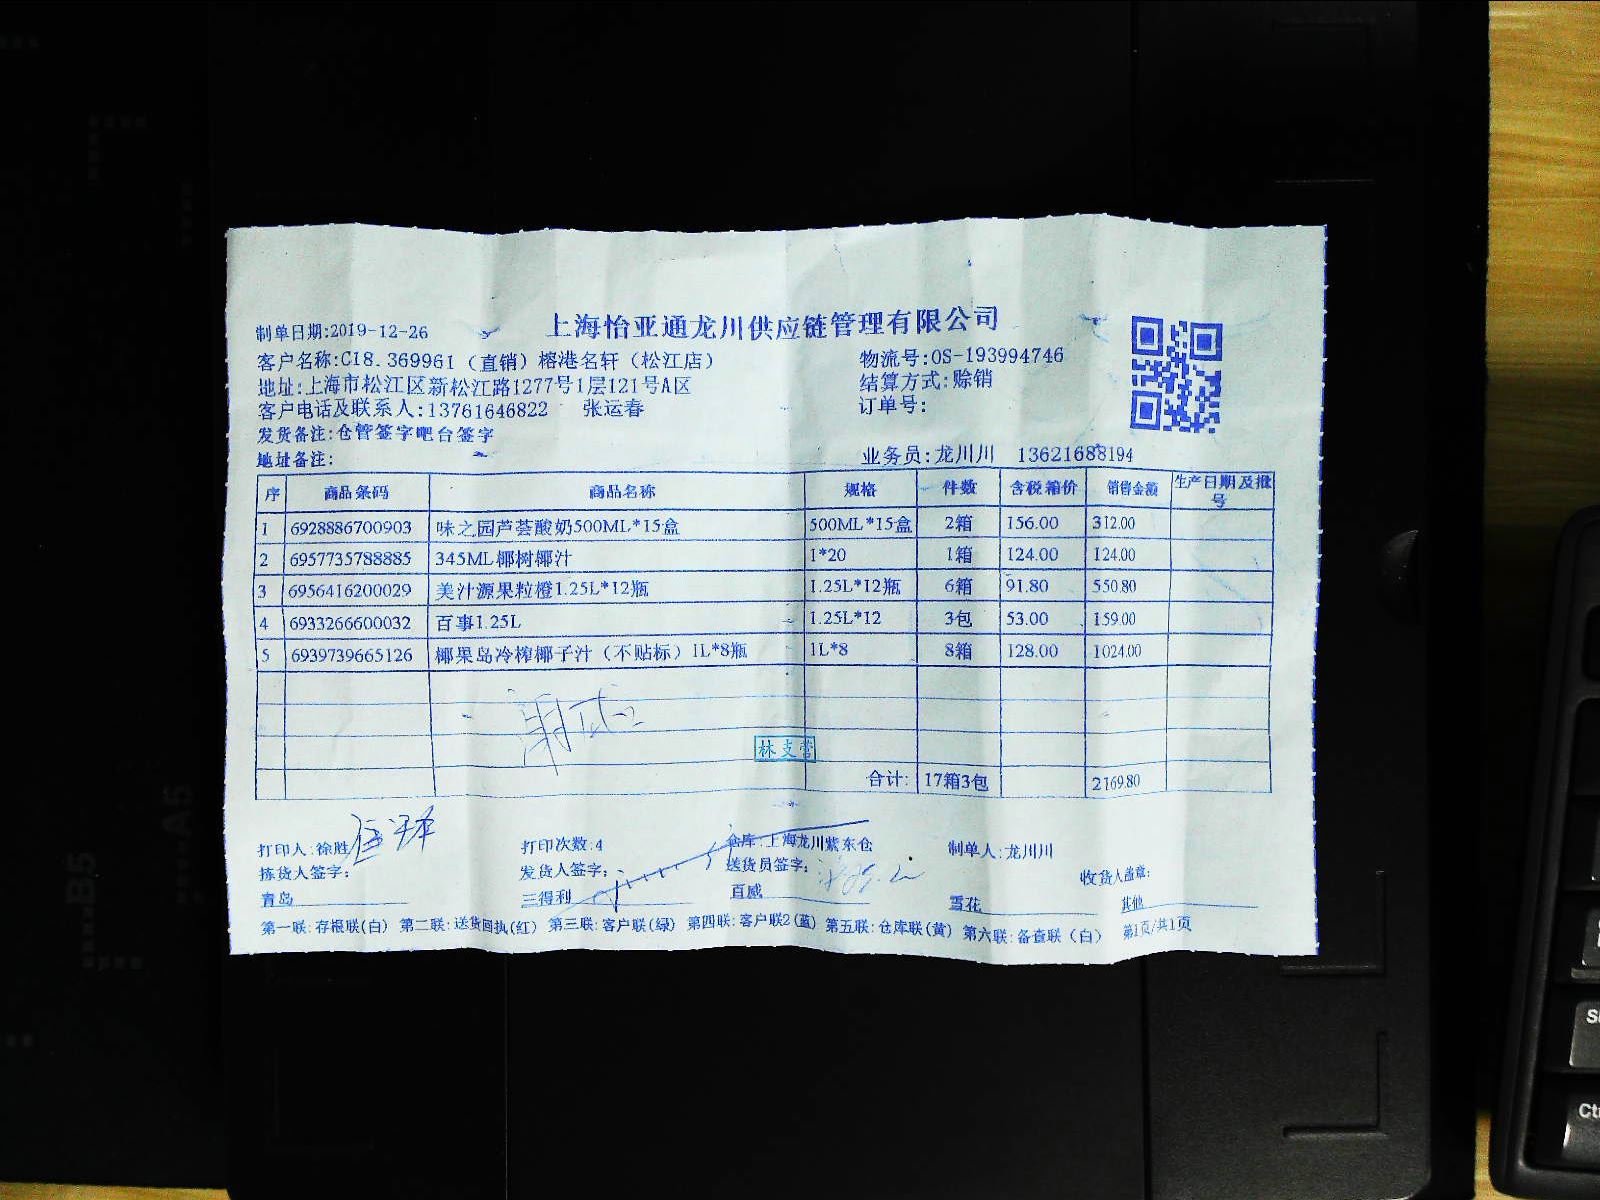 上海怡亚通龙川供应链管理有限公司
制单日期:2019-12-26
客户名称:C18.369961（直销）榕港名轩（松江店） 物流号:OS-193994746
地址:上海市松江区新松江路1277号1层121号A区 结算方式:赊销
客户电话及联系人:13761646822 张运春 订单号:
发货备注:仓管签字吧台签字
地址备注: 业务员:龙川川 13621688194
序 商品条码 商品名称 规格 件数 含税箱价 销售金额 生产日期及批号
1 6928886700903 味之园芦荟酸奶500ML*15盒 500ML*15盒 2箱 156.00 312.00
2 6957735788885 345ML椰树椰汁 1*20 1箱 124.00 124.00
3 6956416200029 美汁源果粒橙1.25L*12瓶 1.25L*12瓶 6箱 91.80 550.80
4 6933266600032 百事1.25L 1.25L*12 3包 53.00 159.00
5 6939739665126 椰果岛冷榨椰子汁（不贴标）1L*8瓶 1L*8 8箱 128.00 1024.00
林支营
合计: 17箱3包 2169.80
打印人:徐胜 打印次数:4 仓库:上海龙川紫东仓 制单人:龙川川
拣货人签字: 发货人签字: 送货员签字: 收货人盖章:
青岛 三得利 百威 雪花 其他
第一联:存根联(白) 第二联:送货回执(红) 第三联:客户联(绿) 第四联:客户联2(蓝) 第五联:仓库联(黄) 第六联:备查联（白） 第1页/共1页
B5
A5
Ct